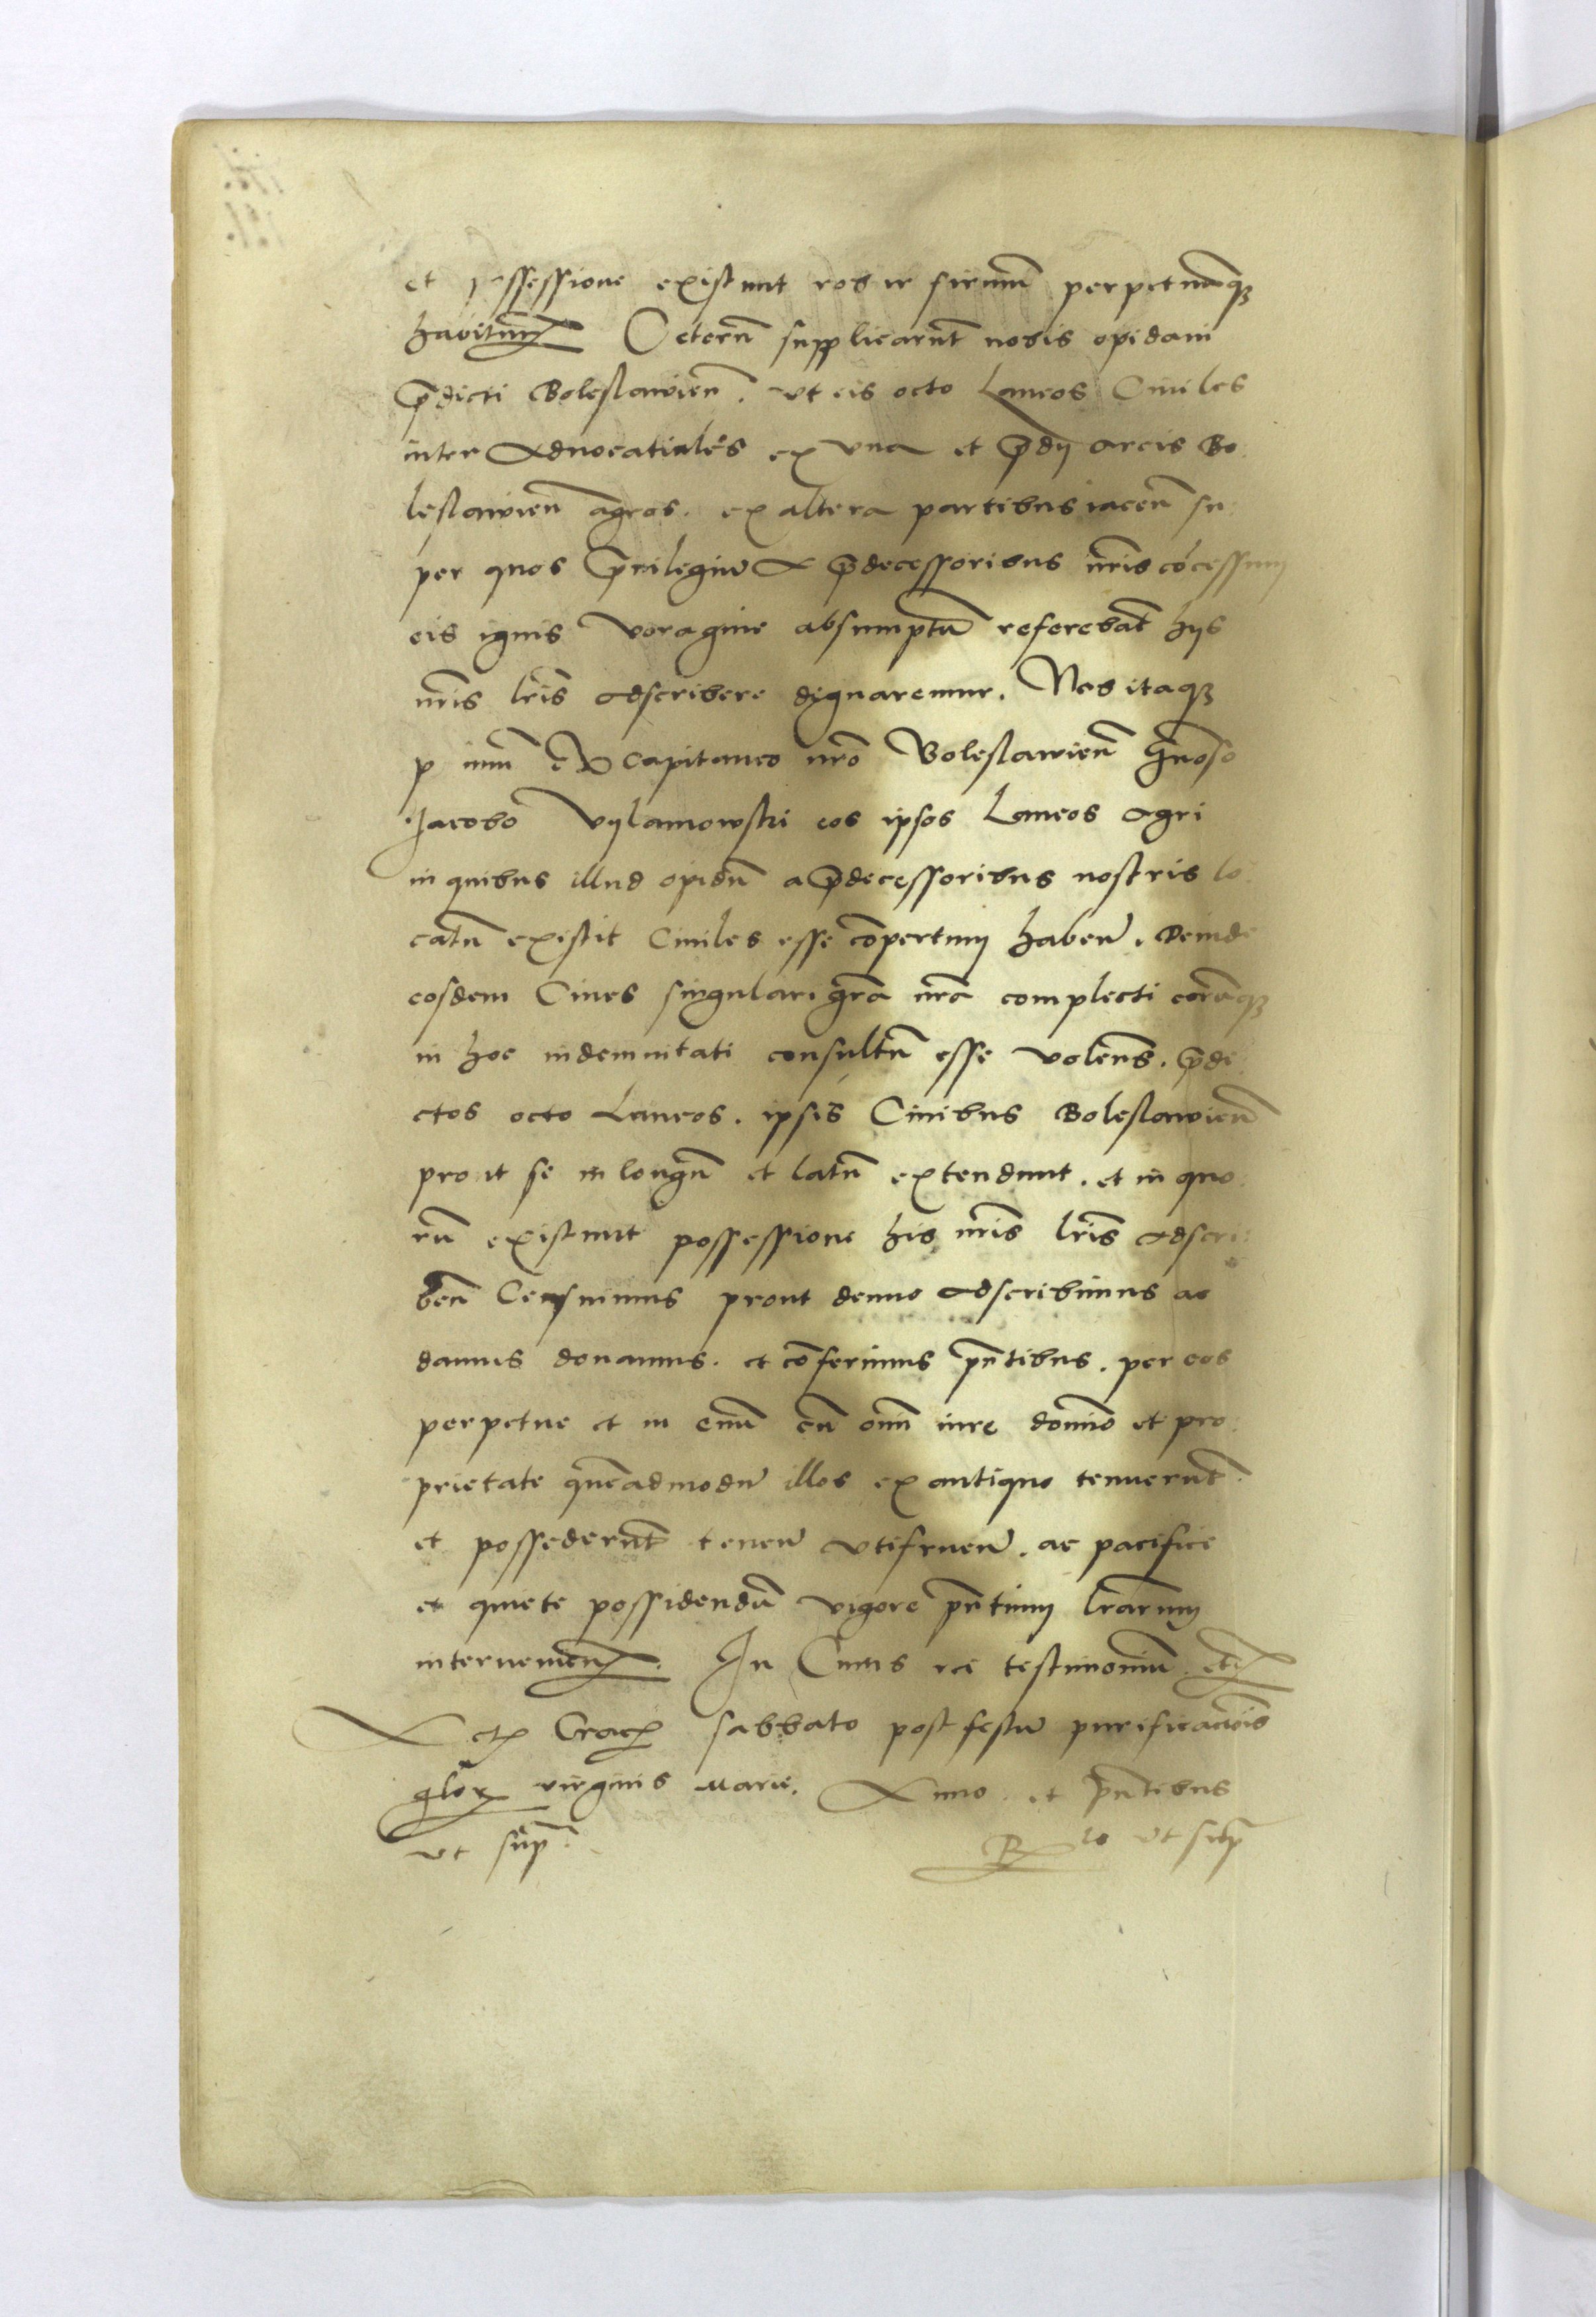 et possessione existunt robur firmum perpetuumqȝ
habiturum Ceterũ supplicarũt nobis opidani
p̃dicti Boleslawieñ. ut eis octo Laneos Ciuiles
inter aduocatiales ex una et p̃dij arcis Bo
leslawieñ agros. ex altera partibus iaceñ su
per quos priuilegiũ a p̃decessoribus nr̃is cõcessum
eis ignis voragine absumptũ referebãt hijs
nr̃is lr̃is adscribere dignaremur. Nos itaqȝ
Capitaneo nrõ Boleslawieñ gñoso
Jacobo Vylamowski eos ipsos Laneos agri
in quibus illud opidũ a p̃decessoribus nostris lo
catũ existit Ciuiles esse cõpertum habeñ. Deinde
eosdem Ciues singulari grã nrã complecti eorũqȝ
in hoc indemnitati consultũ esse voleñs. p̃di
ctos octo Laneos. ipsis Ciuibus Boleslawieñ
prout se in longũ et latũ extendunt. et in quo
rũ existunt possessione his nr̃is lr̃is adscri
beñ Censuimus prout denuo adscribimus ac
damus donamus. et cõferimus p̃ntibus. per eos
perpetue et in euũ cũ om̃i iure domĩo et pro
prietate quẽadmodũ illos ex antiquo tenuerũt
et possederũt teneñ utifrueñ. ac pacifice
et quiete possidendũ vigore p̃ntium lr̃arum
interuenieñ. In Cuius rei testimoniũ etc
Act Crac sabbato post festũ purificaciõis
glor virginis Marie. Anno et p̃ntibus
ut sup̃
Rlo ut sup̃